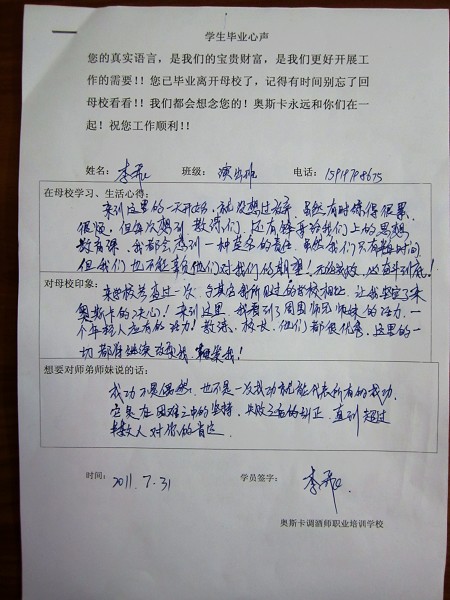 学生毕业心声
您的真实语言，是我们的宝贵财富，是我们更好开展工
作的需要！！您已毕业离开母校了，记得有时间别忘了回
母校看看！！我们都会想念您的！奥斯卡永远和你们在一
起！祝您工作顺利！！
姓名： 班级：演出班 电话：
在母校学习、生活心得：
来到这里的一天开始，就没想过放弃，虽然有时练得很累，
很烦，但每次想到教师们，还有
我们只有
但我们也不能辜负他们对我们的期望！
对母校印象：
来学校参观过一次，与其它我所见过的学校相比，让我坚定了来
奥斯卡的决心！来到这里，我看到了周围师兄师妹的活力，一
个年轻人应有的活力！教师、校长，他们都很优秀，这里的一
切都
想要对师弟师妹说的话：
成功不是偶然，也不是一次成功就能代表所有的成功，
它是在困难之中的坚持，失败之后的纠正，直到超过
人对你的肯定
时间：2011.7.31 学员签字：
奥斯卡调酒师职业培训学校